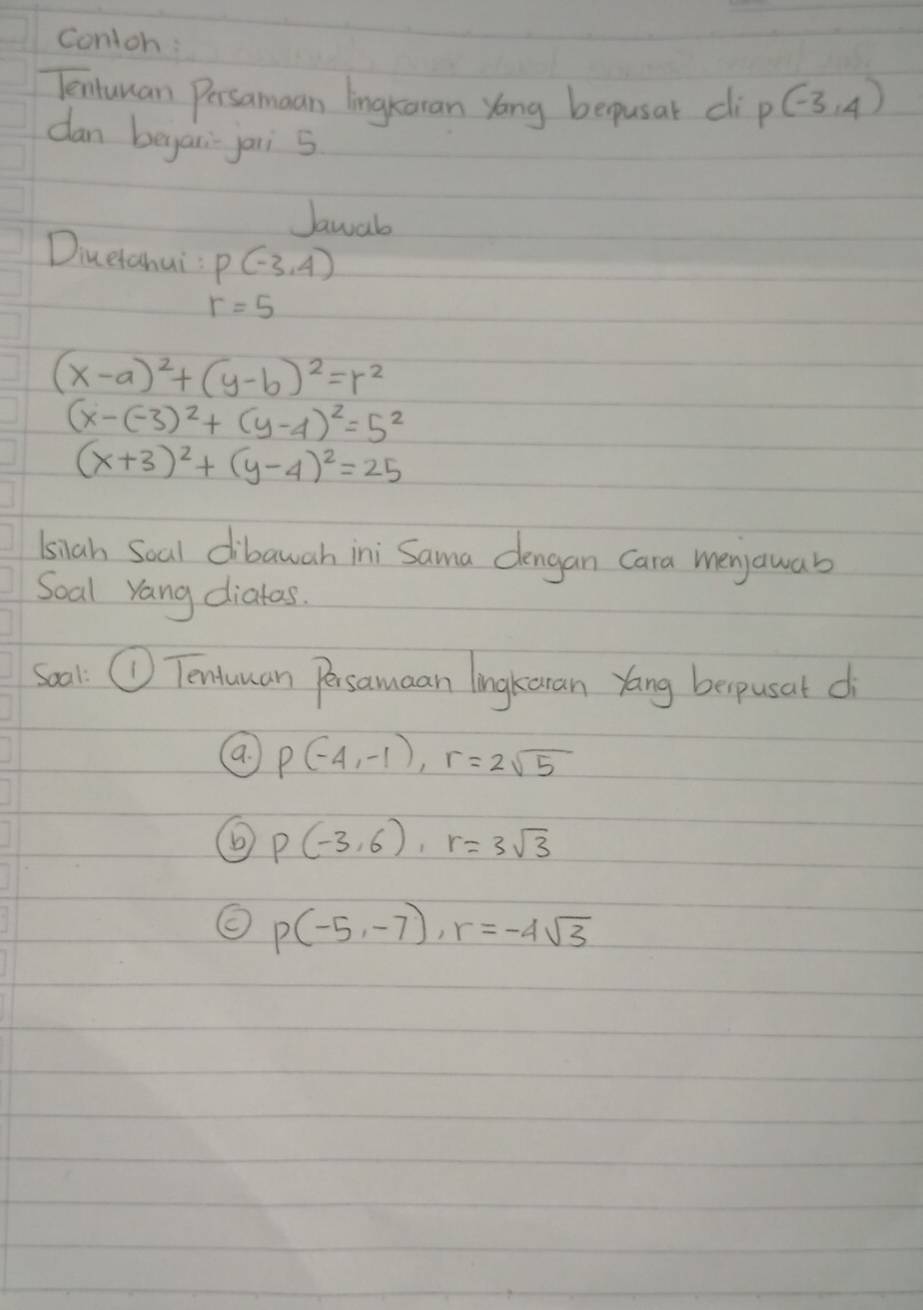 Contoh:
Tentukan Persamaan lingkaran yang berpusat di p(-3,4)
dan berjari-jari 5
Jawab
Diketahui: p(-3,4)
r = 5
(x-a)²+(y-b)²=r²
(x-(-3)²+(y-4)²=5²
(x+3)²+(y-4)²=25
Isilah Soal dibawah ini Sama dengan Cara menjawab
Soal Yang diatas.
Soal: ① Tentukan Persamaan lingkaran Yang berpusat di
ⓐ. p(-4,-1), r=2√5
ⓑ p(-3,6), r=3√3
ⓒ p(-5,-7), r=-4√3